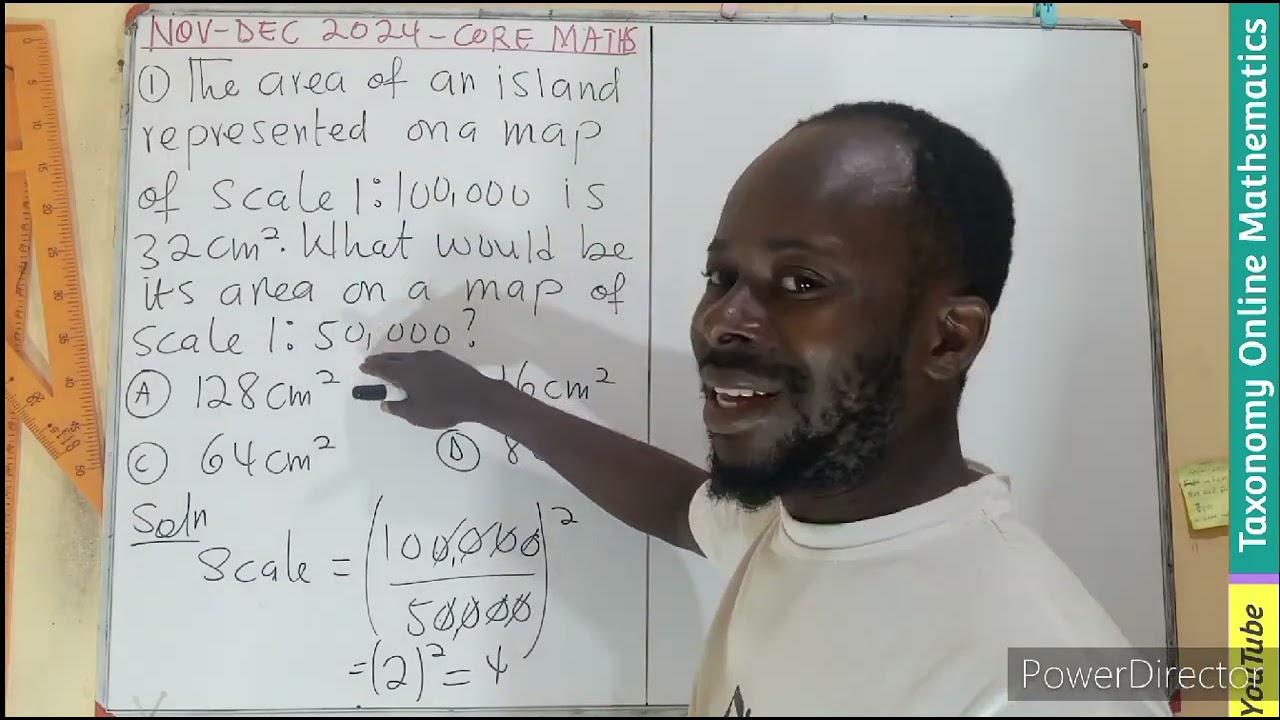 NOV-DEC 2024-CORE MATHS
① The area of an island
represented on a map
of scale 1:100,000 is
32cm². What would be
its area on a map of
scale 1: 50,000?
Ⓐ 128cm² 16cm²
Ⓒ 64cm² Ⓓ 8
Soln
Scale = (100,000/50,000)²
=(2)² = 4
Taxonomy Online Mathematics
YouTube
PowerDirector